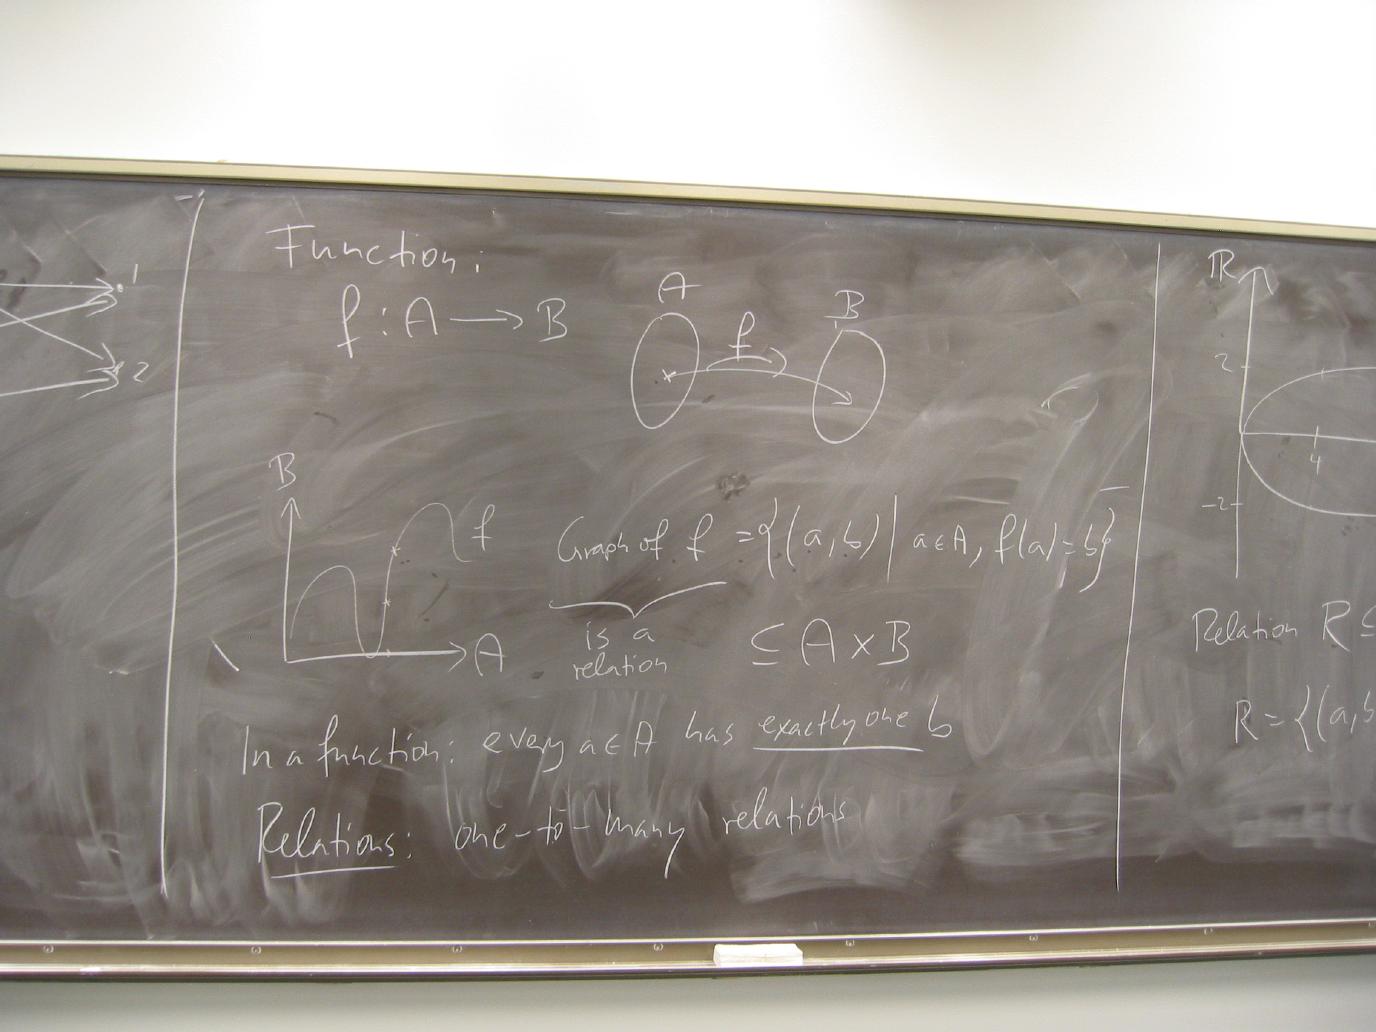 1
2
Function:
f : A → B
A
f
B
B
f
A
Graph of f = {(a,b) | a∈A, f(a)=b}
is a
relation
⊆ A × B
In a function: every a∈A has exactly one b
Relations: one-to-many relations
R
2
4
-2
Relation R ⊆
R = {(a,b